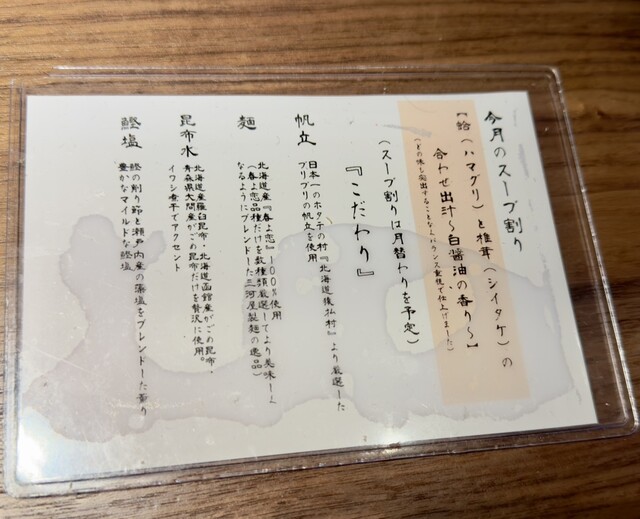 今月のスープ割り
【蛤(ハマグリ)と椎茸(シイタケ)の
合わせ出汁～白醤油の香り～】
(どの味も突出することなくバランス重視で仕上げました)
(スープ割りは月替わりを予定)
『こだわり』
帆立
日本一のホタテの村『北海道猿払村』より厳選した
プリプリの帆立を使用
麺
北海道産『春よ恋』100%使用
(春よ恋品種だけを数種類厳選してより美味しく
なるようにブレンドした三河屋製麺の逸品)
昆布水
北海道産羅臼昆布・北海道函館産がごめ昆布・
青森県大間産がごめ昆布だけを贅沢に使用。
イワシ煮干でアクセント
鰹塩
鰹の削り節と瀬戸内産の藻塩をブレンドした香り
豊かなマイルドな鰹塩